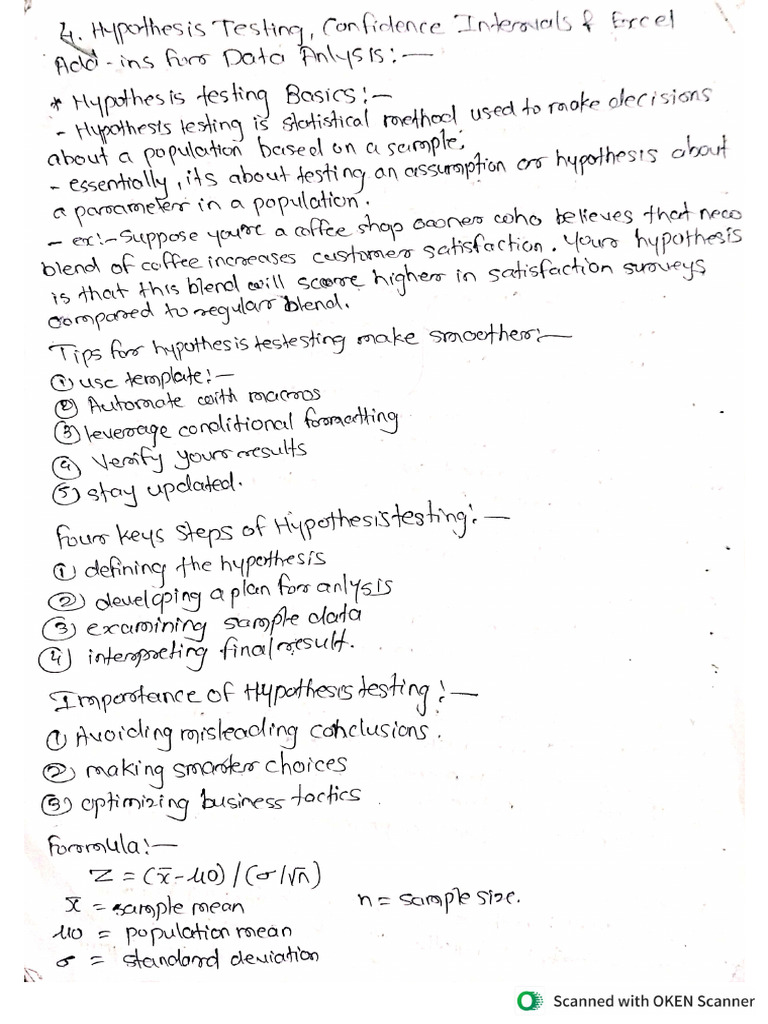 4. Hypothesis Testing, Confidence Intervals & Excel
Add-ins for Data Anlysis:—
* Hypothesis testing Basics:—
- Hypothesis testing is statistical method used to make decisions
about a population based on a sample;
- essentially, its about testing an assumption or hypothesis about
a parameter in a population.
- ex:- Suppose you're a coffee shop owner who believes that new
blend of coffee increases customer satisfaction. Your hypothesis
is that this blend will score higher in satisfaction surveys
compared to regular blend.
Tips for hypothesis testesting make smoother:—
① use template:—
② Automate with macros
③ leverage conditional formatting
④ Verify your results
⑤ stay updated.
Four keys steps of Hypothesis testing:—
① defining the hypothesis
② developing a plan for anlysis
③ examining sample data
④ interpreting final result.
Importance of Hypothesis testing:—
① Avoiding misleading conclusions.
② making smarter choices
③ optimizing business tactics
Formula:—
Z = (x̄ - μ0) / (σ/√n)
x̄ = sample mean n = sample size.
μ0 = population mean
σ = standard deviation
Scanned with OKEN Scanner